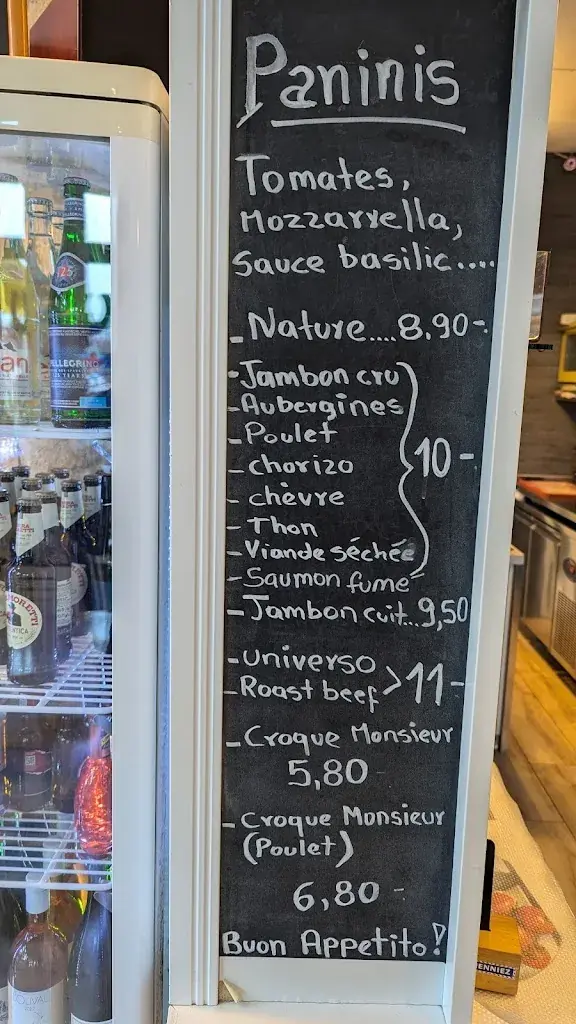 Paninis
Tomates,
Mozzarrella,
Sauce basilic....
- Nature.... 8.90-.
- Jambon cru
- Aubergines
- Poulet
- chorizo
- chèvre
- Thon
- Viande séchée
} 10 -
- Saumon fumé
- Jambon cuit... 9,50
- universo
- Roast beef
> 11 -
- Croque Monsieur
5,80
- Croque Monsieur
(Poulet)
6,80 -
Buon Appetito!
PELLEGRINO
MORETTI
ENNIEZ